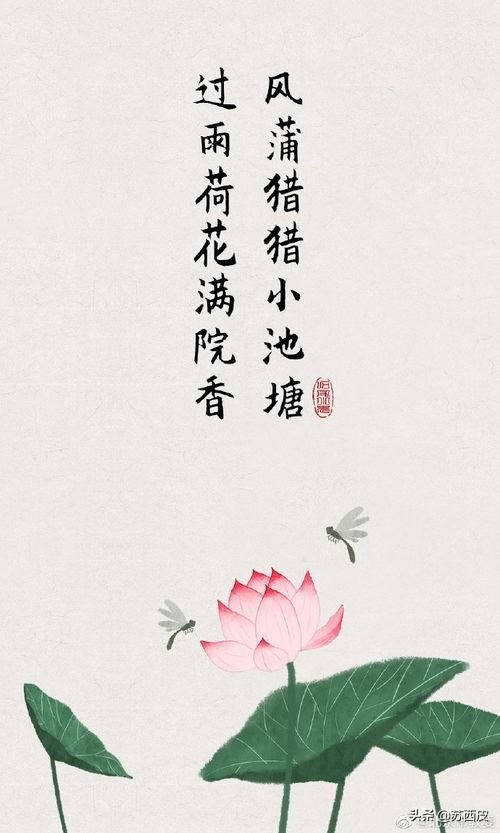 风蒲猎猎小池塘
过雨荷花满院香
头条 @苏西皮